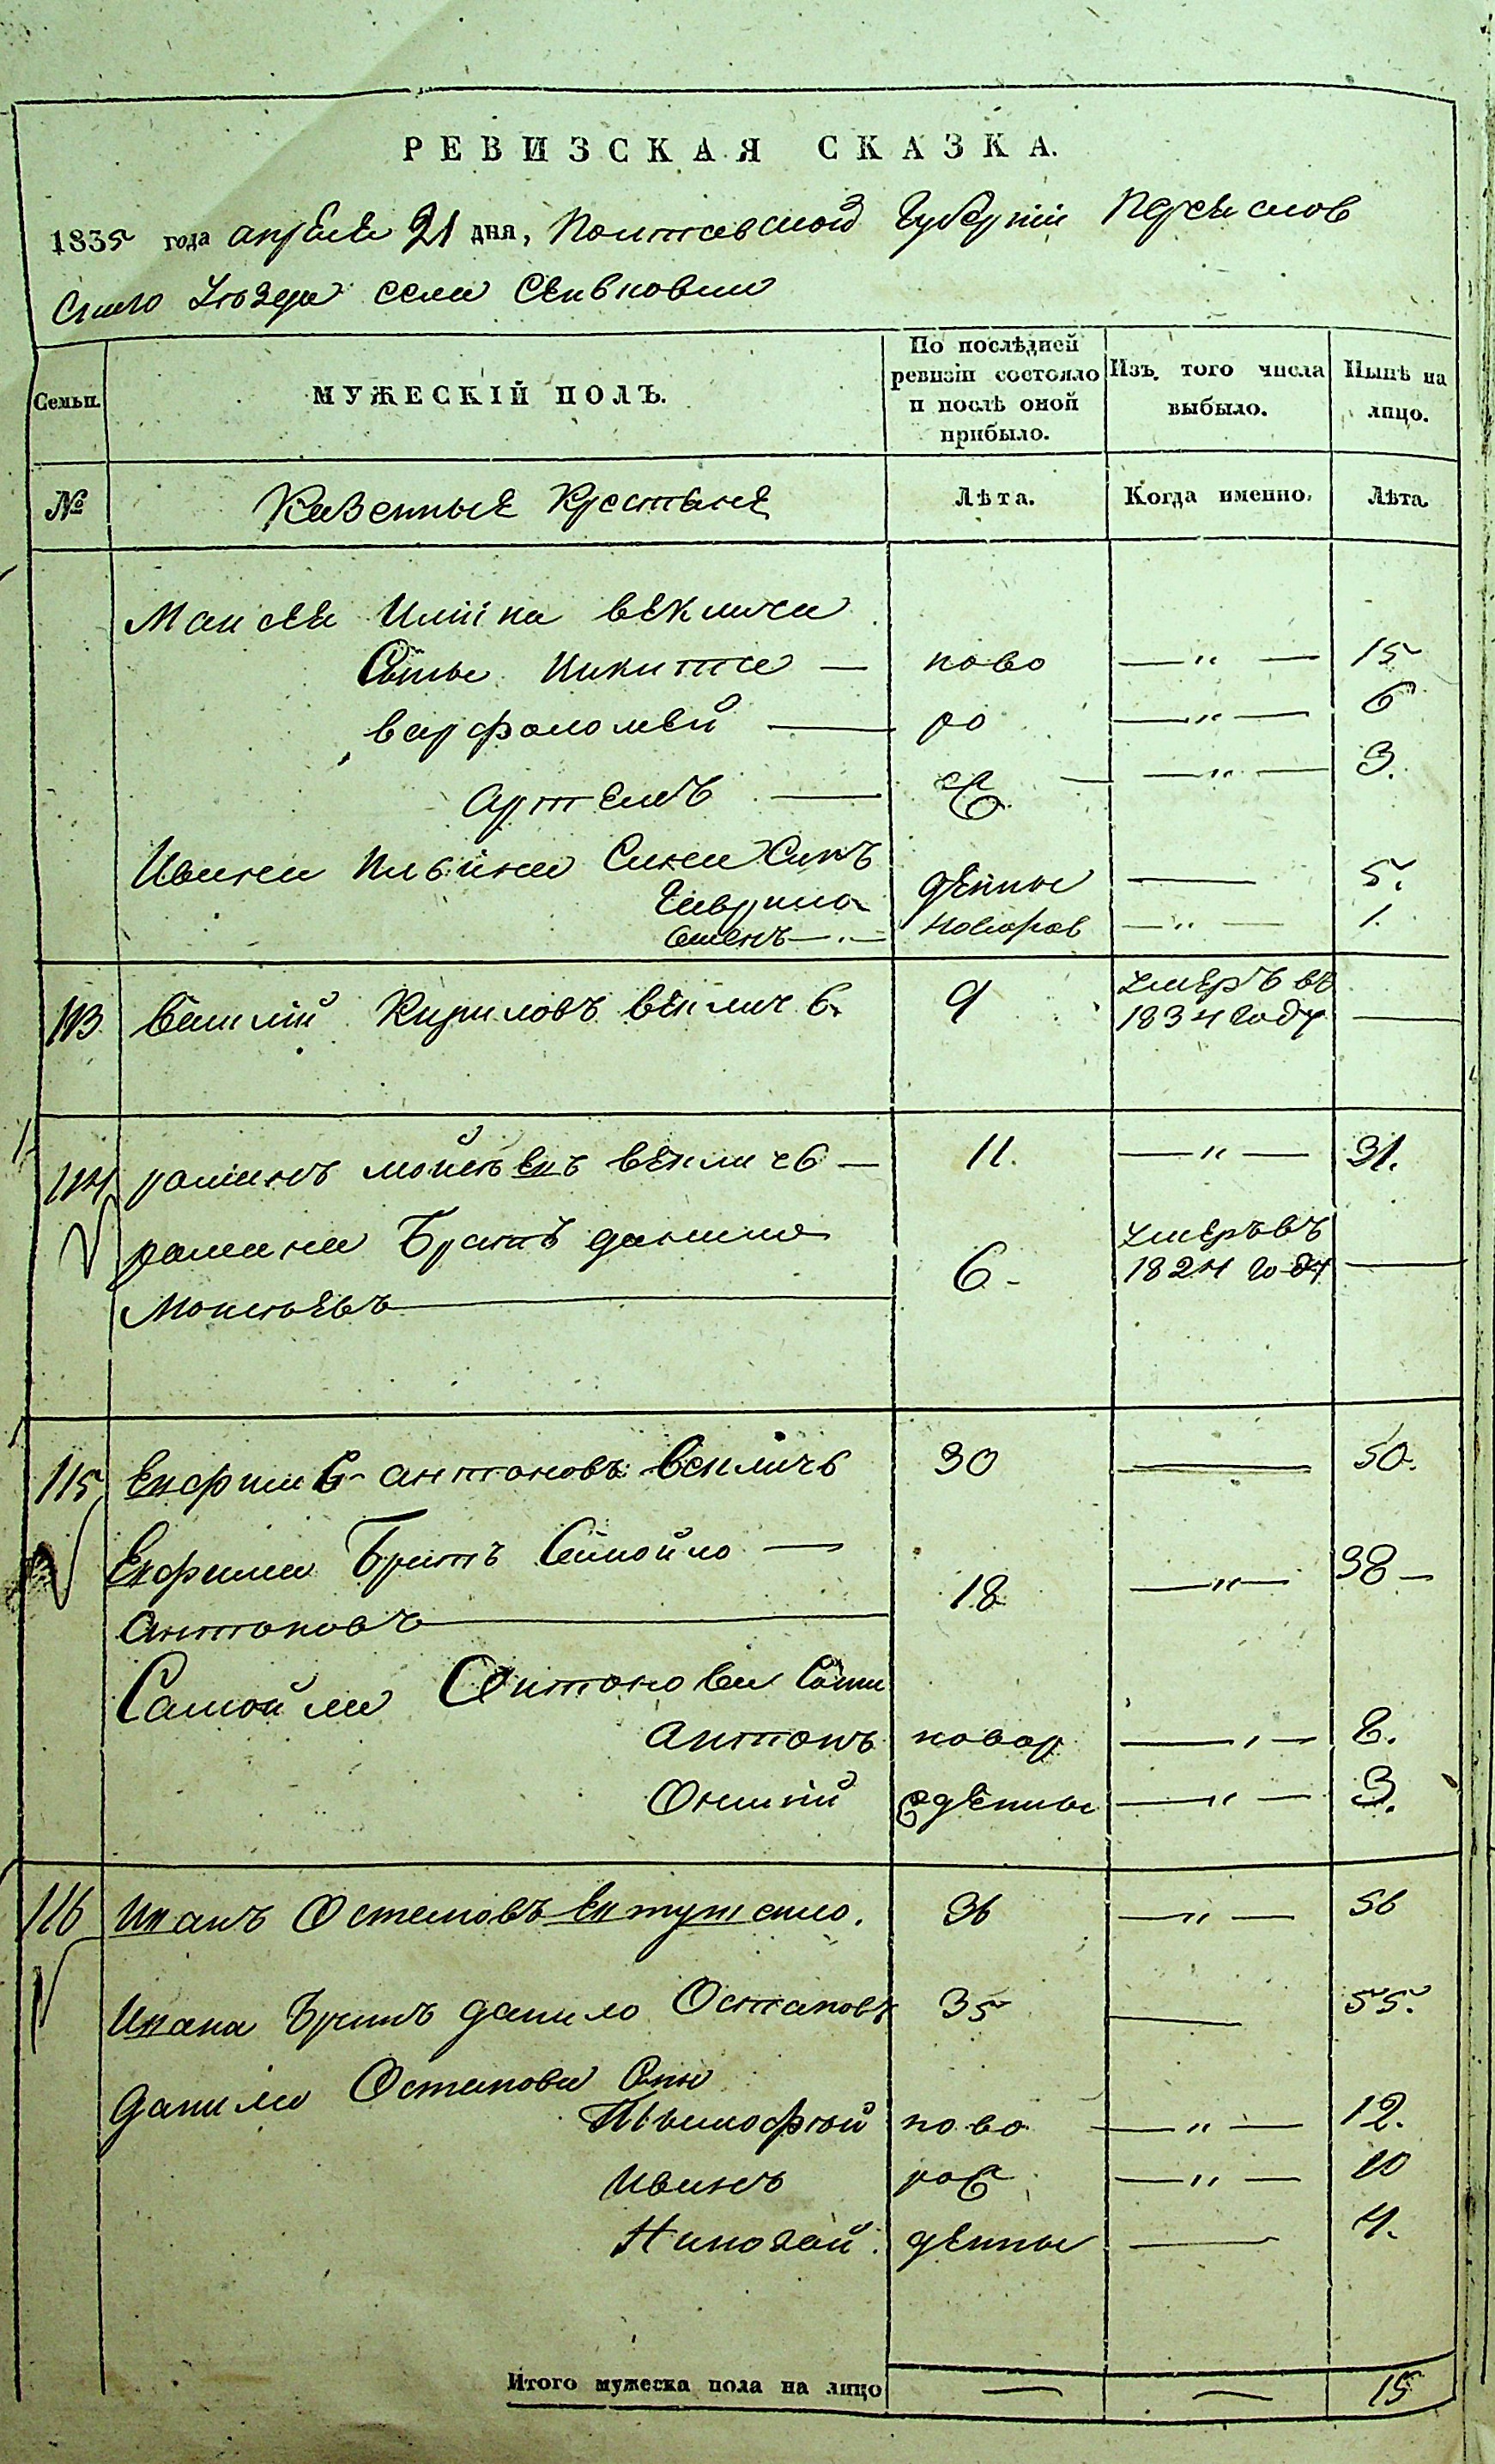 РЕВИЗСКАЯ СКАЗКА.
1835 года апреля 21 дня, Полтавской Губернии Переяслов
скаго уезда села
Семьи. МУЖЕСКІЙ ПОЛЪ. По послѣдней ревизіи состояло и послѣ оной прибыло. Изъ того числа выбыло. Нынѣ на лицо.
№ Казенные Крестьяне Лѣта. Когда именно. Лѣта.
Векличя
Сыны Никита — ново — " — 15
варфоломей — ро — " — 6
артемъ — — " — 3.
Ивана Ильина Сына Синъ
Гаврило денные — 5.
Семенъ — новоров — " — 1.
113 Василій Кириловъ векличь 9 умеръ въ 1834 году —
114 романъ векличь — 11. — " — 31.
романа Братъ данило
Моисѣевъ — 6 - умеръ въ 1824 году —
115 Ефимъ антоновъ векличь 30 — 50.
Ефима Братъ Самойло —
антоновъ — 18 — " — 38 —
Самойла Антонова Сыни
антонъ новор — " — 8.
Онисій жденные — " — 3.
116 Иванъ Остаповъ Евтушенко. 36 — " — 56
Ивана Братъ данило Остаповъ 35 — 55.
данила Остапова Сыны
Тымофѣй ново — " — 12.
Иванъ рож — " — 10
Николай. денные — 4.
Итого мужеска пола на лицо — — 15